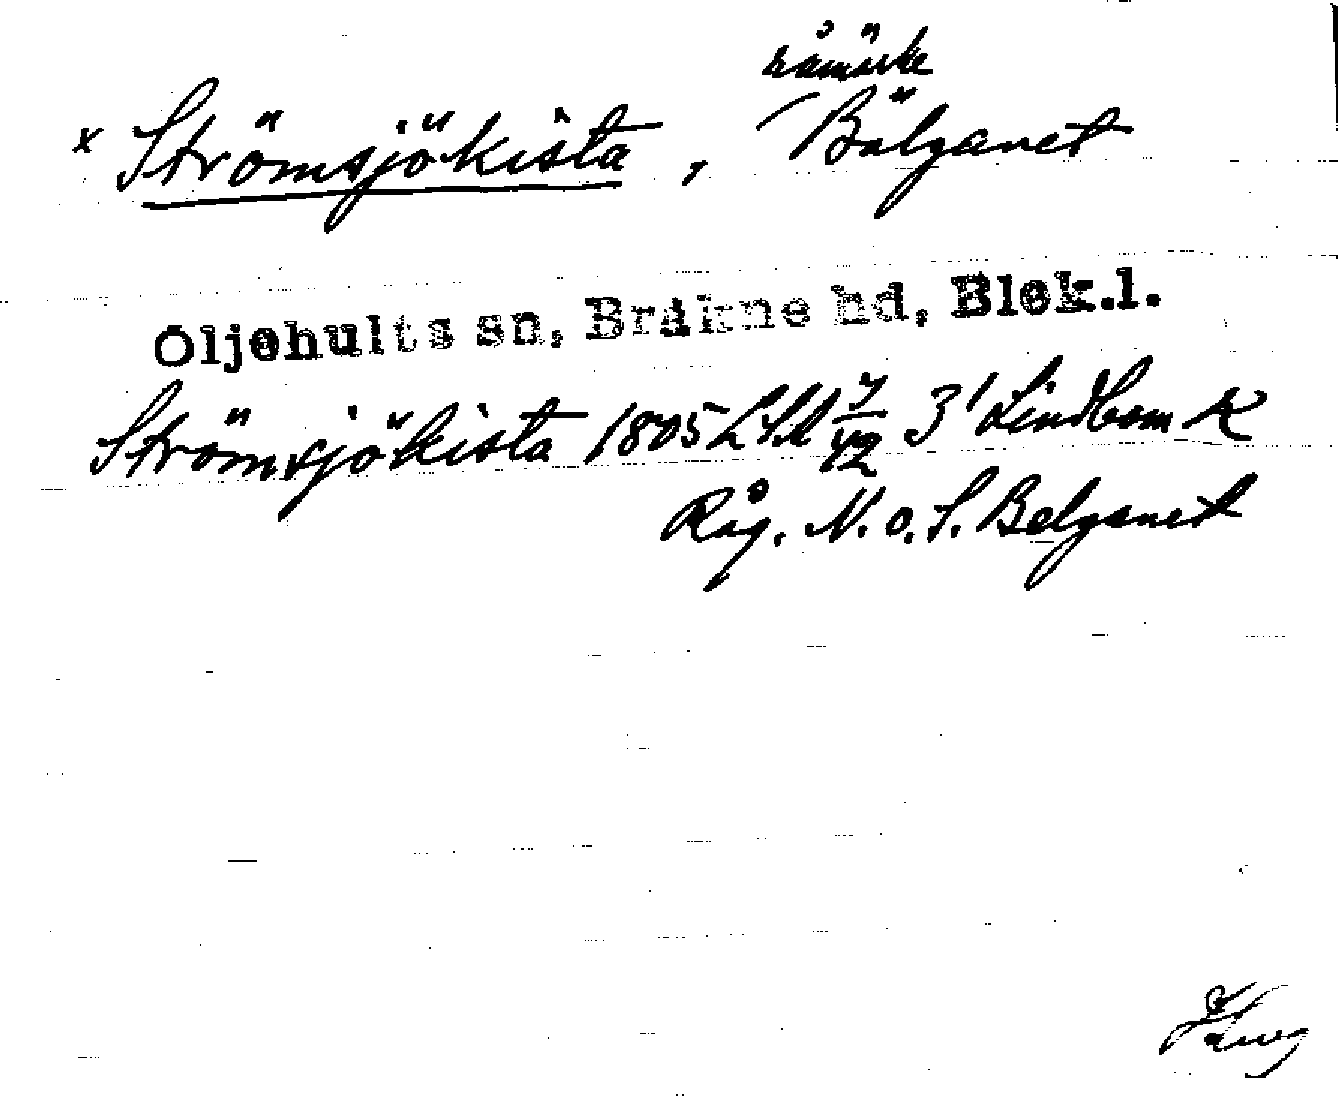 råmärke
x Strömsjökista, Bälganet
Öljehults sn, Bräkne hd, Blek.l.
Strömsjökista 1805 LSA 7/42 3' Lindbom K
Råg. N. o. S. Belganet